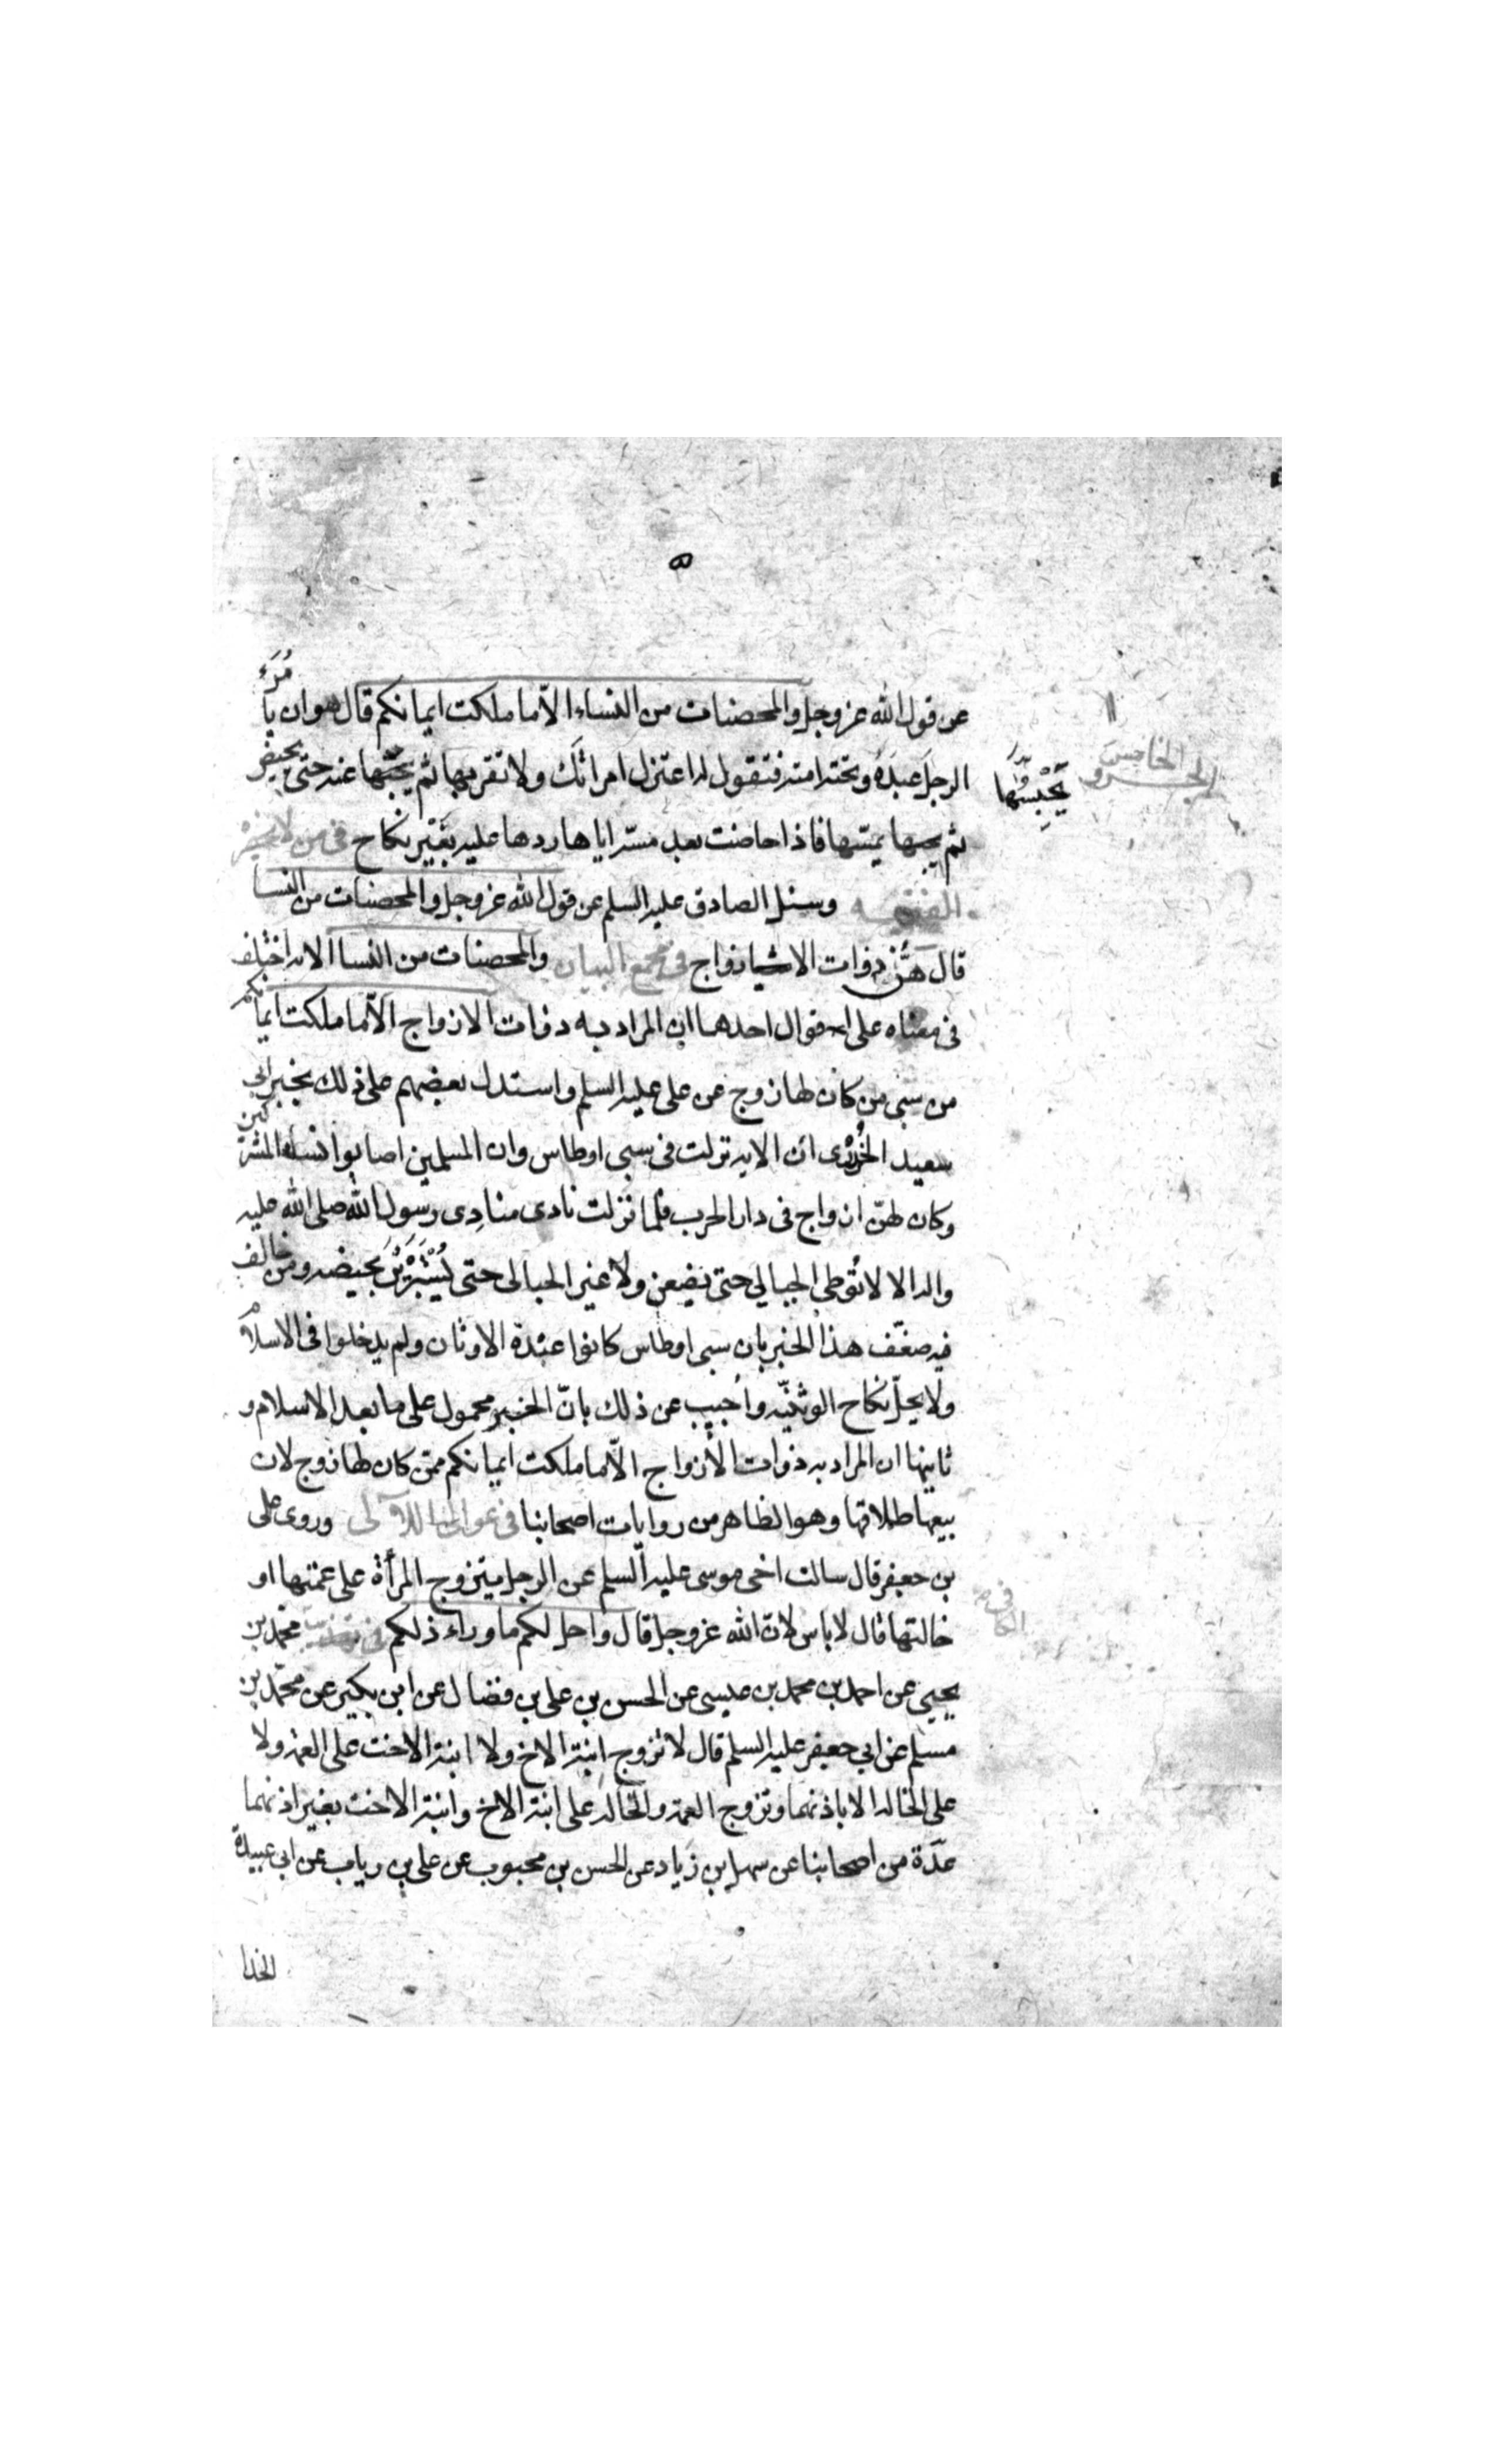 عن قول الله عزوجل والمحصنات من النساء الّا ما ملكت ايمانكم قال هو ان يأمُرَ
الرجل عبدَهُ وتحته امته فتقول له اعتزل امراتك ولا تقربها ثم يحبسها عنه حتى تحيض
ثم يمسّها فاذا حاضت بعد مسّه اياها ردها عليه بغَيْر نكاح فى من لا يحضره
الفقيه وسئل الصادق عليه السلم عن قول الله عزوجل والمحصنات من النسا
قال هُنّ ذوات الازواج فى مجمع البيان والمحصنات من النسا الاية اختلف
فى معناه على اقوال احدهما ان المراد به ذوات الازواج الّا ما ملكت ايمانكم
من سبى من كان لها زوج عن على عليه السلم واستدل بعضهم على ذلك بخبر ابى
سعيد الخُدْرى ان الاية نزلت فى سبى اوطاس وان المسلمين اصابوا نساء المشركين
وكان لهنّ ازواج فى دار الحرب فلما نزلت نادى منادِى رسول الله صلى الله عليه
واله الا لا تُوطى الحبالى حتى يضعن ولا غير الحبالى حتى يُسْتَبْرَئْنَ بحيضة ومن خالف
فيه ضعّف هذا الخبر بان سبى اوطاس كانوا عبدة الاوثان ولم يدخلوا فى الاسلام
ولا يحلّ نكاح الوثنيّه واُجيب عن ذلك بانّ الخبر محمول على ما بعد الاسلام و
ثانيها ان المراد به ذوات الأزواج الّا ما ملكت ايمانكم ممّن كان لها زوج لان
بيعها طلاقها وهو الظاهر من روايات اصحابنا فى عوالى اللآلى وروى على
بن جعفر قال سالت اخى موسى عليه السلم عن الرجل يتزوج المرأة على عمتها او
خالتها قال لا باس لانّ الله عزوجل قال واحل لكم ما وراء ذلكم فى محمّد بن
يحيى عن احمد بن محمد بن عيسى عن الحسن بن على بن فضال عن ابن بكير عن محمّد بن
مسلم عن ابى جعفر عليه السلم قال لا تزوج ابنة الاخ ولا ابنة الاخت على العمة ولا
على الخالة الا باذنهما وتزوج العمة والخالة على ابنة الاخ وابنة الاخت بغير اذنهما
عدّة من اصحابنا عن سهل بن زياد عن الحسن بن محبوب عن على بن رياب عن ابى عبيدة
الحذا
الجزو
الخامس
يَحْبِسُهَا
فى الكافى